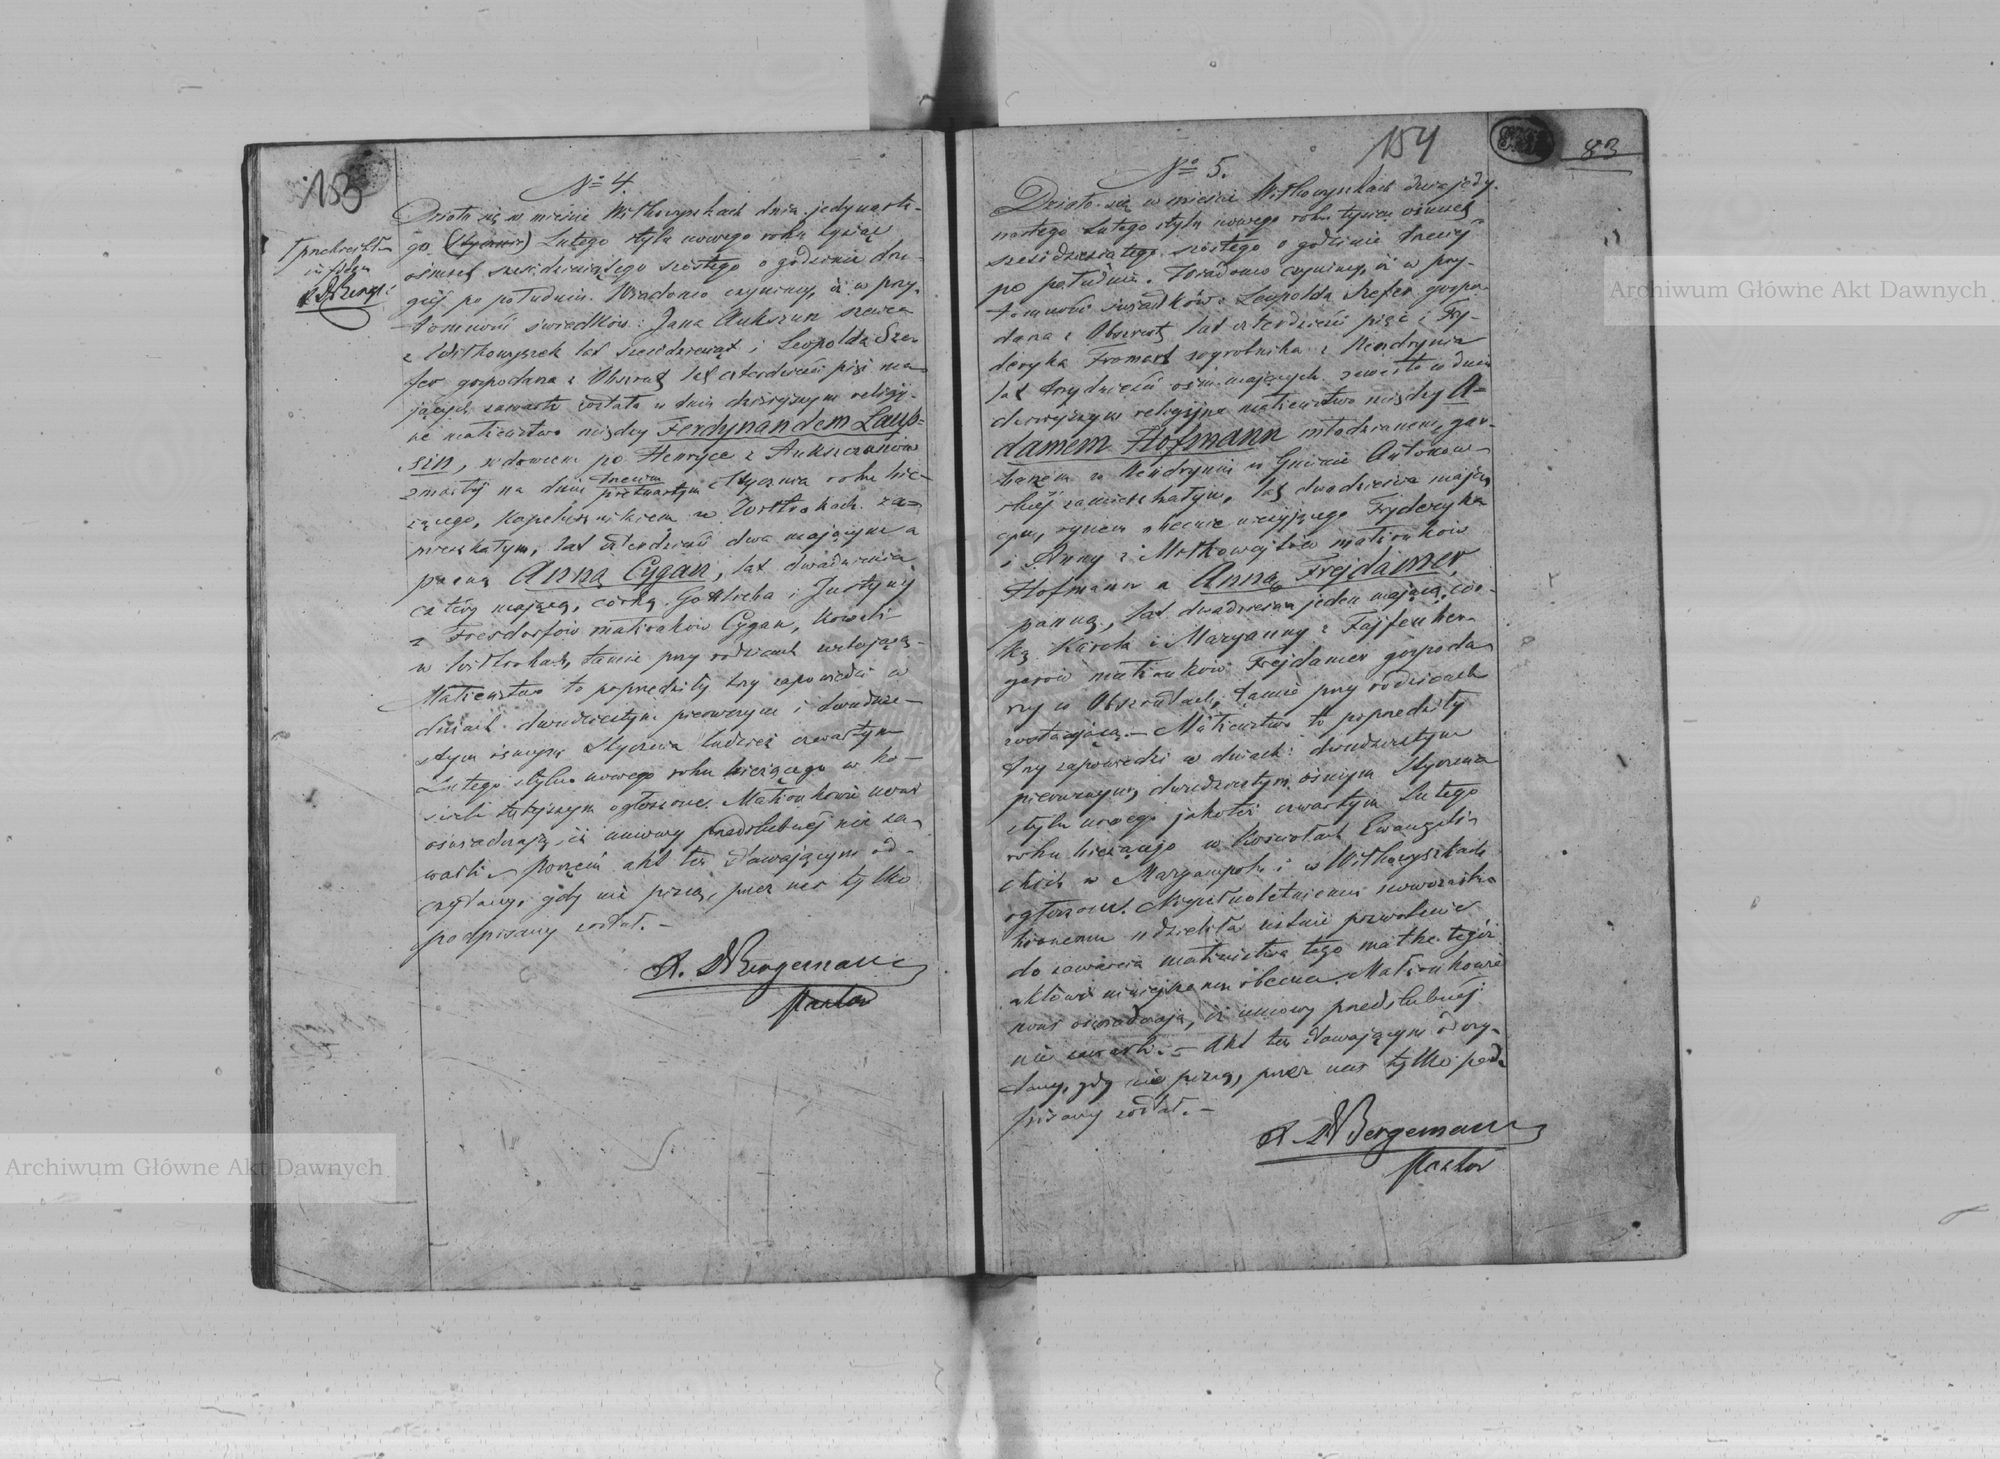 153
No 4.
Działo się w mieście Wiłkowyszkach dnia jedynaste-
go (Stycznia) Lutego stylu nowego roku tysiąc
ośmset sześćdziesiątego szóstego o godzinie dru-
giej po południu. Wiadomo czynimy, iż w przy-
tomności świadków: Jana Aukszun szewca
z Wiłkowyszek lat sześćdziesiąt i Leopolda Sze-
fer gospodarza z Obszrut lat czterdzieści pięć ma-
jących zawarte zostało w dniu dzisiejszym religij-
ne małżeństwo między Ferdynandem Laup-
sin, wdowcem po Henryce z
zmarłej na dniu Stycznia roku bie-
żącego, kapelusznikiem w za-
mieszkałym, lat czterdzieści dwa mającym a
panną Anną Cygan, lat dwadzieścia
cztery mającą, córką Gottlieba i Justyny
z Freidorfów małżonków Cygan, kowali
w tamże przy rodzicach zostającą.
Małżeństwo to poprzedziły trzy zapowiedzi w
dniach dwudziestym pierwszym i dwudzie-
stym ósmym Stycznia tudzież czwartym
Lutego stylu nowego roku bieżącego w ko-
ściele tutejszym ogłoszone. Małżonkowie nowi
oświadczają, iż umowy przedślubnej nie za-
warli. Poczem akt ten stawającym od-
czytany, gdy nie piszą, przez nas tylko
podpisany został. –
A. Bergemann
Pastor
154
83
No 5.
Działo się w mieście Wiłkowyszkach dnia jedy-
nastego Lutego stylu nowego roku tysiąc ośmset
sześćdziesiątego szóstego o godzinie trzeciej
po południu. Wiadomo czynimy, iż w przy-
tomności świadków: Leopolda Szefer gospo-
darza z Obszrut lat czterdzieści pięć i Fry-
deryka Fromert zagrodnika z Kendrynia
lat trzydzieści ośm mających zawarto w dniu
dzisiejszym religijne małżeństwo między A-
damem Hofmann młodzianem, gar-
barzem w Kendryniu w Gminie Antonow-
skiej zamieszkałym, lat dwadzieścia mają-
cym, synem Fryderyka
i Anny z małżonków
Hofmann a Anną Frejdamer,
panną, lat dwadzieścia jeden mającą, cór-
ką Karola i Maryanny z Fajfenber-
gerów małżonków Frejdamer gospoda-
rzy w Obszrutach, tamże przy rodzicach
zostającą. – Małżeństwo to poprzedziły
trzy zapowiedzi w dniach: dwudziestym
pierwszym, dwudziestym ósmym Stycznia
stylu nowego jakoteż czwartym Lutego
roku bieżącego w Kościołach Ewangeli-
ckich w Maryampolu i w Wiłkowyszkach
ogłoszone. Niepełnoletniemu nowozaślu-
bionemu udzieliła ustnie pozwolenie
do zawarcia małżeństwa tego matka tegoż
aktowi niniejszemu obecna. Małżonkowie
nowi oświadczają, iż umowy przedślubnej
nie zawarli. – Akt ten stawającym odczy-
tany, gdy nie piszą, przez nas tylko pod-
pisany został. –
A. Bergemann
Pastor
Archiwum Główne Akt Dawnych
Archiwum Główne Akt Dawnych